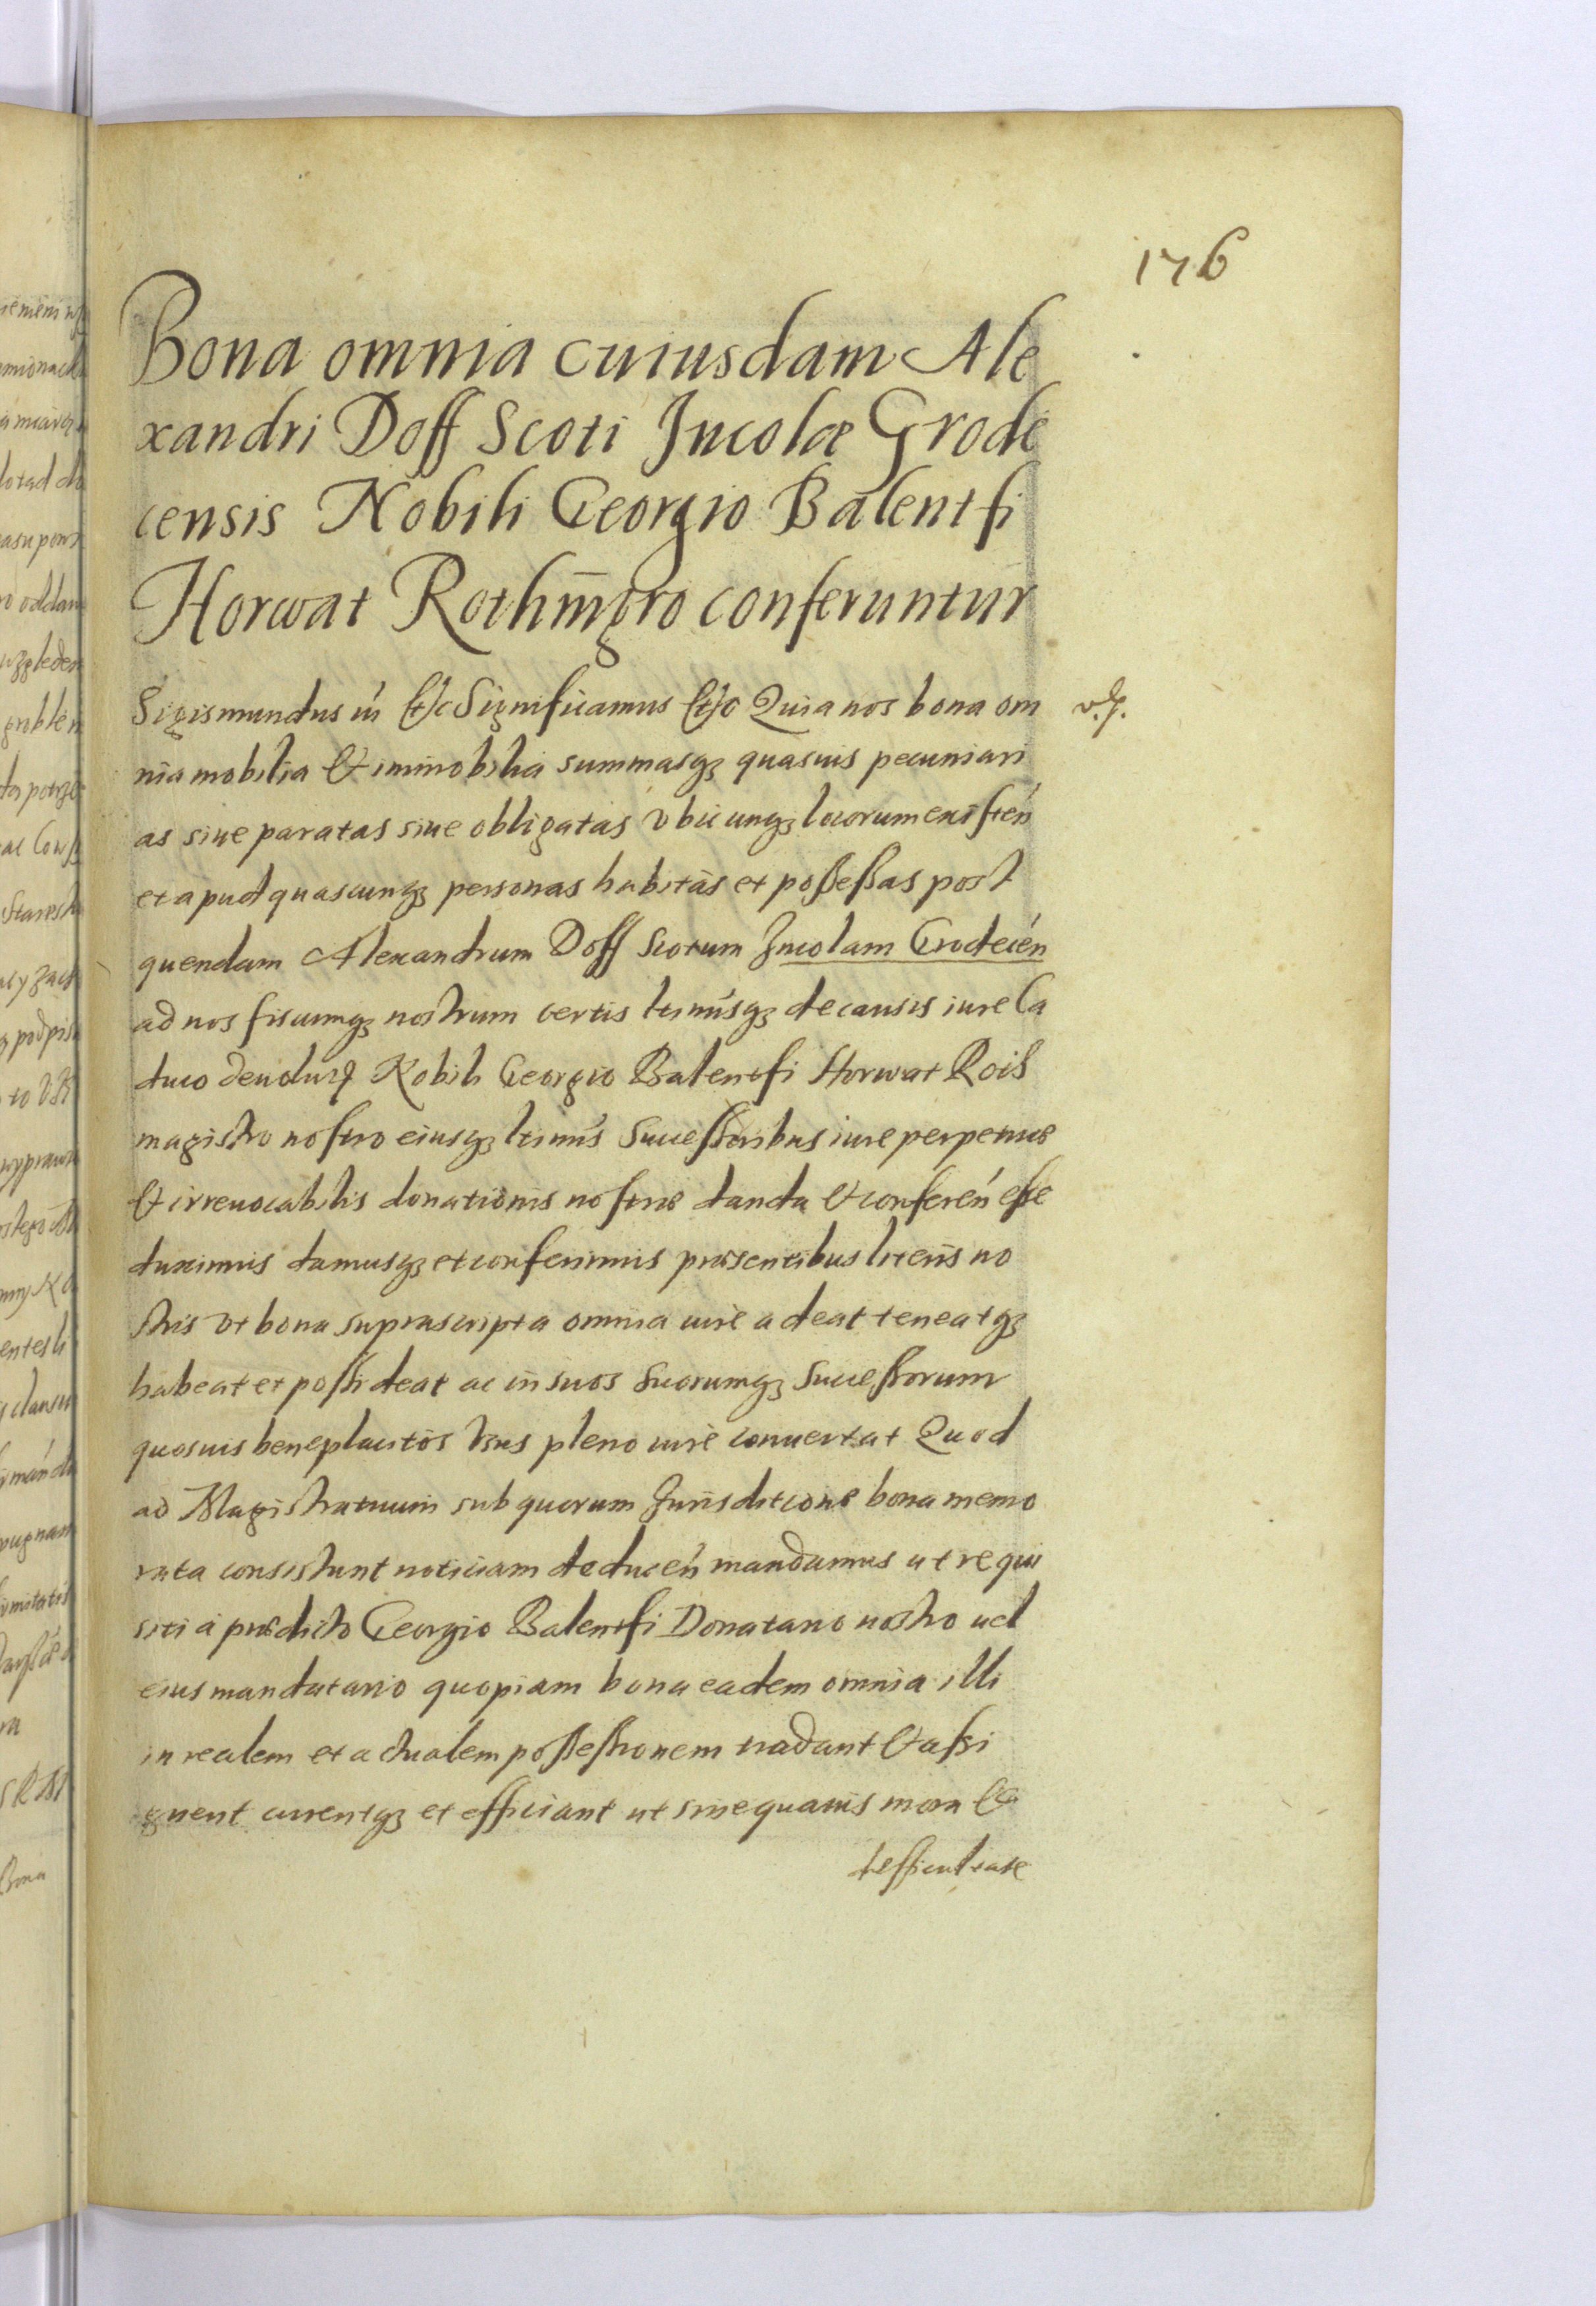 176
Bona omnia cuiusdam Ale
xandri Doff Scoti Incolæ Grode
censis Nobili Georgio Balentfi
Horwat Rothmgro conferuntur
Sigismundus iii &c Significamus &c Quia nos bona om
nia mobilia & immobilia summasq3 quasuis pecuniari
as siue paratas siue obligatas vbicunq3 locorum existen
et apud quascunq3 personas habitas et possessas post
quendam Alexandrum Doff Scotum Incolam Grodecen
ad nos fiscumq3 nostrum certis ltimisq3 de causis iure Ca
duco Nobili Georgio Balentfi Horwat Roth
magistro nostro eiusq3 ltimis Successoribus iure perpetuæ
& irreuocabilis donationis nostræ danda & conferen esse
duximus damusq3 et conferimus præsentibus literis no
stris vt bona suprascripta omnia iure adeat teneatq3
habeat et possideat ac in suos suorumq3 Successorum
quosuis beneplacitos vsus pleno iure conuertat Quod
ad Magistratuum sub quorum Jurisditione bona memo
rata consistunt noticiam deducen mandamus ut requi
siti a prædicto Georgio Balentfi Donatario nostro uel
eius mandatario quopiam bona eadem omnia illi
in realem et actualem possessionem tradant & assi
gnent curentq3 et efficiant ut sine quauis mora &
difficultate